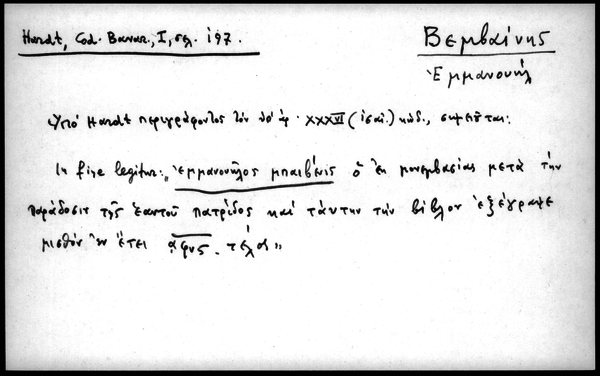 Hardt, Cod. Bavar., I, σελ. 197.
Βεμβαίνης
Ἐμμανουήλ
Ὑπό Hardt περιγράφοντος τόν ὑπ' ἀρ. XXXVI (ἰσαι.) κώδ., σημειοῦται:
In fine legitur: „ἐμμανουῆλος μπαιβένις ὁ ἐκ μονεμβασίας μετὰ τὴν
παράδοσιν τῆς ἑαυτοῦ πατρίδος καὶ ταύτην τὴν βίβλον ἐξέγραψε
μισθόν ἐν ἔτει ͵αφνς. τέλος"